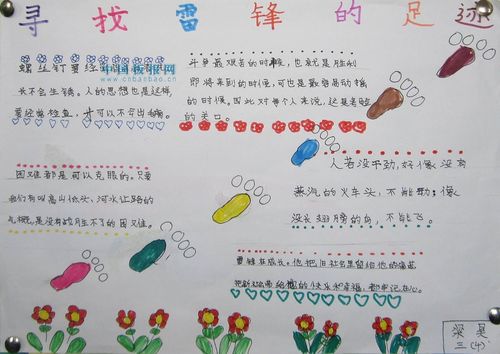 寻找雷锋的足迹
螺丝钉要经
中国板报网
www.cnbanbao.cn
长不会生锈。人的思想也是这样,
要经常检查,才可以不出毛病。
斗争最艰苦的时候,也就是胜利
即将来到的时候,可也是最容易动摇
的时候。因此对每个人来说,这是考验
的关口。
困难都是可以克服的。只要
我们有叫高山低头,河水让路的
气概,是没有战胜不了的困难。
人若没干劲,好像没有
蒸汽的火车头,不能动;像
没长翅膀的鸟,不能飞。
雷锋在成长,他把旧社会里留给他的痛苦
把新社会带给他的快乐和幸福,都牢记在心。
三(4)